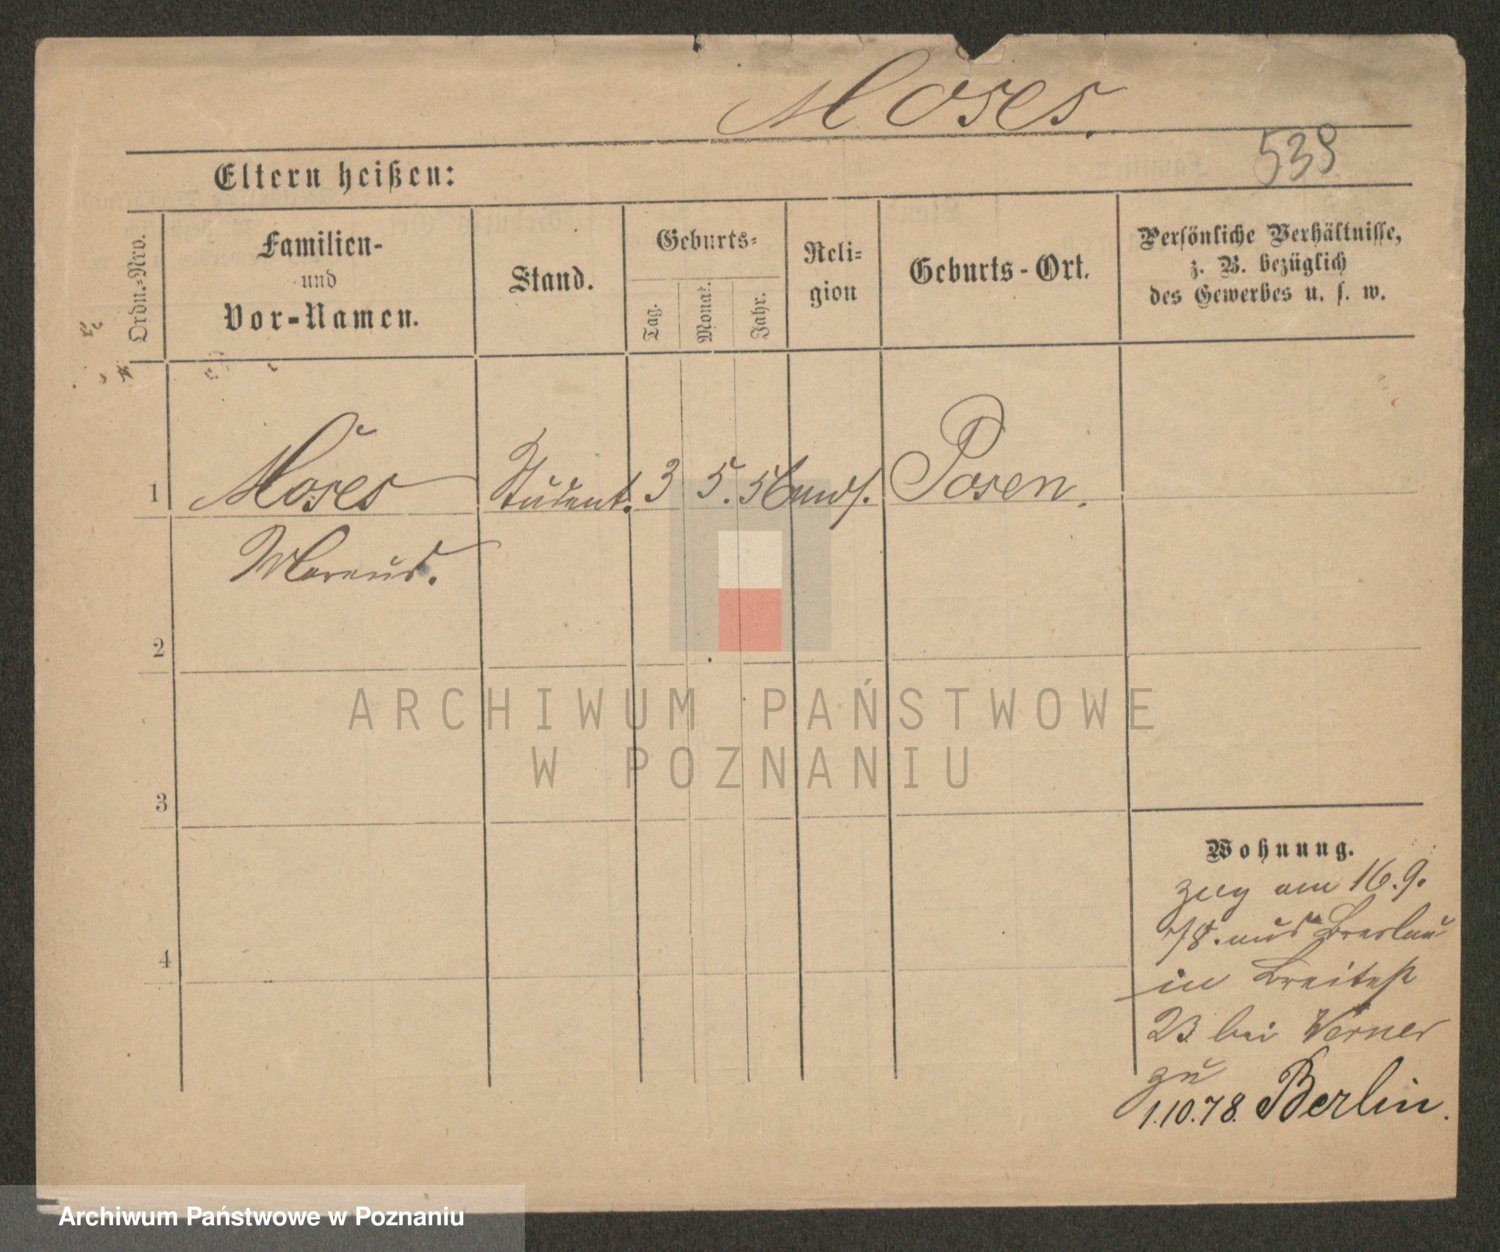 Moses.
539
Eltern heißen:
Ordn.-Nro.
Familien-
und
Vor-Namen.
Stand.
Geburts-
Tag.
Monat.
Jahr.
Reli-
gion
Geburts-Ort.
Persönliche Verhältnisse,
z. B. bezüglich
des Gewerbes u. s. w.
1 Moses Student. 3 5. 56 Posen.
Marcus.
2
3
4
ARCHIWUM PAŃSTWOWE
W POZNANIU
Wohnung.
zug am 16.9.
78. aus Breslau
in Breitestr
23 bei Werner
zu
1.10.78. Berlin.
Archiwum Państwowe w Poznaniu